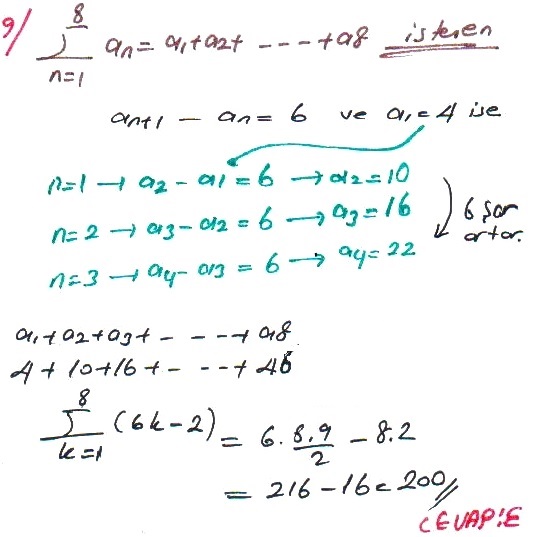 9/ 8 ∑ n=1 an = a1 + a2 + - - - - + a8 istenen
an+1 - an = 6 ve a1 = 4 ise
n=1 → a2 - a1 = 6 → a2 = 10
n=2 → a3 - a2 = 6 → a3 = 16
n=3 → a4 - a3 = 6 → a4 = 22
6 şar
artar.
a1 + a2 + a3 + - - - - + a8
4 + 10 + 16 + - - - - + 46
8 ∑ k=1 (6k - 2) = 6 . 8.9/2 - 8.2
= 216 - 16 = 200
CEVAP:E